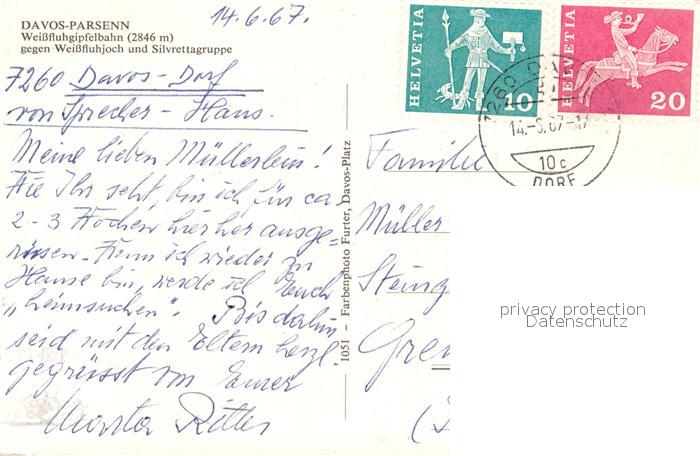 14.6.67.
DAVOS-PARSENN
Weißfluhgipfelbahn (2846 m)
gegen Weißfluhjoch und Silvrettagruppe
7260 Davos-Dorf
von Sprecher-Haus.
Meine lieben Müllerlein!
Wie Ihr seht, bin ich für ca
2-3 Wochen hierher ausge-
rissen. Wenn ich wieder zu
Hause bin, werde ich Euch
„heimsuchen". Bis dahin
seid mit den Eltern herzl
gegrüsst von Eurer
Ritter
1051 – Farbenphoto Furter, Davos-Platz
HELVETIA
10
HELVETIA
20
7260 DAVOS
14.-6.67-17
10c
DORF
Familie
Müller
Steing
Gren
privacy protection
Datenschutz